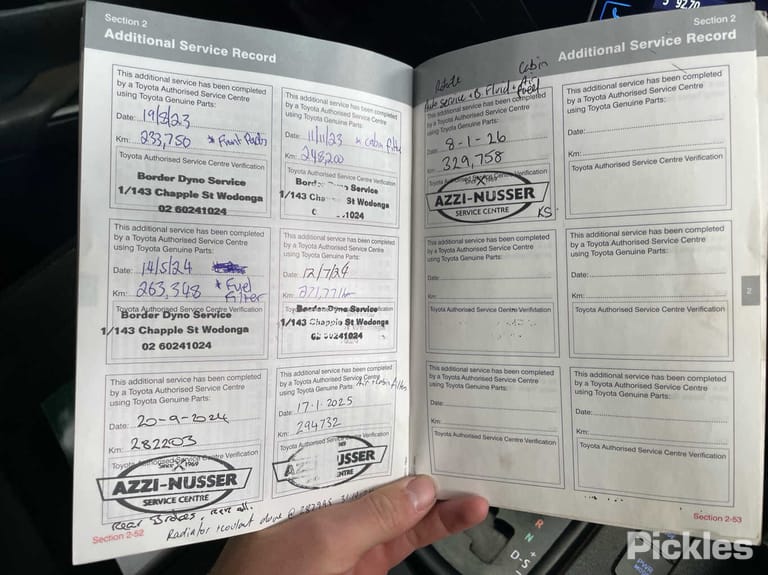 Section 2
Additional Service Record
This additional service has been completed
by a Toyota Authorised Service Centre
using Toyota Genuine Parts:
Date: 19/8/23
Km: 233,750 * Front Pads
Toyota Authorised Service Centre Verification
Border Dyno Service
1/143 Chapple St Wodonga
02 60241024
This additional service has been completed
by a Toyota Authorised Service Centre
using Toyota Genuine Parts:
Date: 11/11/23 * Cabin Filter
Km: 248,200
Toyota Authorised Service Centre Verification
Service
1/143 St Wodonga
1024
This additional service has been completed
by a Toyota Authorised Service Centre
using Toyota Genuine Parts:
Date: 14/5/24
Km: 263,348 * Fuel
Filter
Toyota Authorised Service Centre Verification
Border Dyno Service
1/143 Chapple St Wodonga
02 60241024
This additional service has been completed
by a Toyota Authorised Service Centre
using Toyota Genuine Parts:
Date: 12/7/24
Km:
Border Dyno Service
1/143 Chapple St Wodonga
02 60241024
This additional service has been completed
by a Toyota Authorised Service Centre
using Toyota Genuine Parts:
Date: 20-9-2024
Km: 282203
Toyota Authorised Service Centre Verification
Since 1969
AZZI-NUSSER
SERVICE CENTRE
Rear Brakes,
This additional service has been completed
by a Toyota Authorised Service Centre
using Toyota Genuine Parts: Air + Cabin Filters
Date: 17-1-2025
Km: 294732
Toyota Authorised Service Centre Verification
NUSSER
Radiator + coolant done @
Section 2-52
Section 2
Additional Service Record
Rotate Cabin
Service + B Fluid + Air
Fuel
This additional service has been completed
by a Toyota Authorised Service Centre
using Toyota Genuine Parts:
Date: 8-1-26
Km: 329,758
Toyota Authorised Service Centre Verification
AZZI-NUSSER
SERVICE CENTRE
KS
This additional service has been completed
by a Toyota Authorised Service Centre
using Toyota Genuine Parts:
Date:
Km:
Toyota Authorised Service Centre Verification
This additional service has been completed
by a Toyota Authorised Service Centre
using Toyota Genuine Parts:
Date:
Km:
Toyota Authorised Service Centre Verification
This additional service has been completed
by a Toyota Authorised Service Centre
using Toyota Genuine Parts:
Date:
Km:
Toyota Authorised Service Centre Verification
This additional service has been completed
by a Toyota Authorised Service Centre
using Toyota Genuine Parts:
Date:
Km:
Toyota Authorised Service Centre Verification
This additional service has been completed
by a Toyota Authorised Service Centre
using Toyota Genuine Parts:
Date:
Km:
Toyota Authorised Service Centre Verification
2
Section 2-53
R
N
D-S
+
PWR
MODE
Pickles